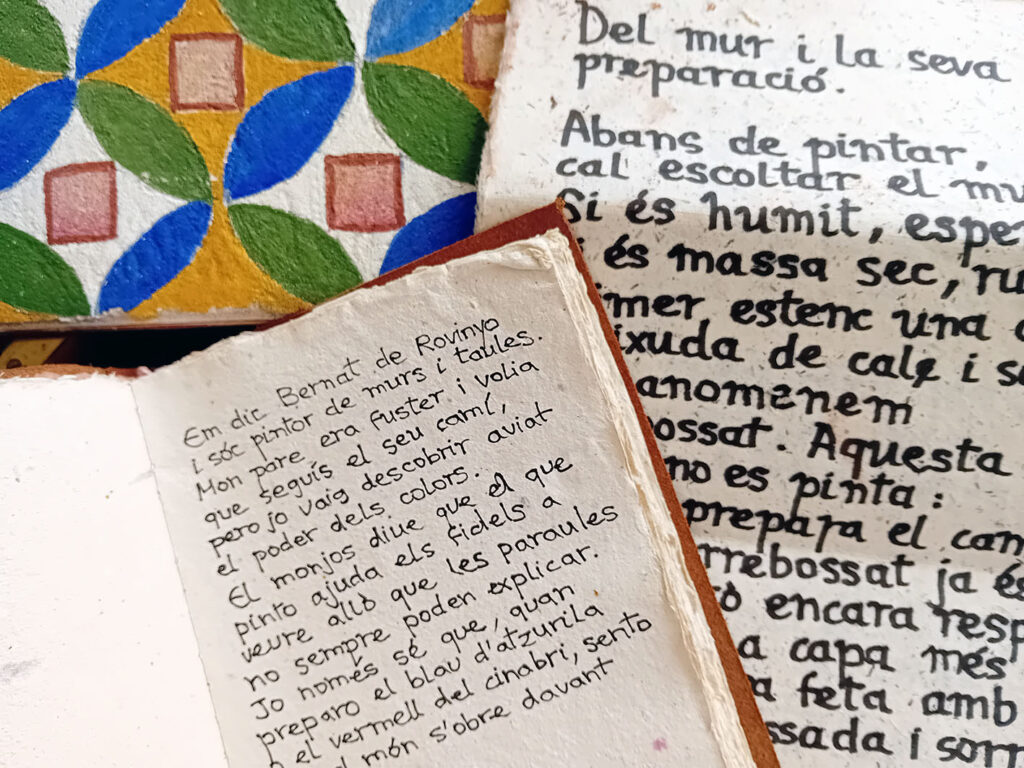 Del mur i la seva
preparació.
Abans de pintar,
cal escoltar el
Si és humit,
és massa sec,
estenc una
de calç i
anomenem
Aquesta
no es pinta:
prepara el
ja
encara
a capa més
feta amb
i
Em dic Bernat de Rovinyo
i sóc pintor de murs i taules.
Mon pare era fuster i volia
que seguís el seu camí,
pero jo vaig descobrir aviat
el poder dels colors.
El monjos diue que el que
pinto ajuda els fidels a
veure allò que les paraules
no sempre poden explicar.
Jo només sé que, quan
preparo el blau d'atzurila
o el vermell del cinabri, sento
el món s'obre davant